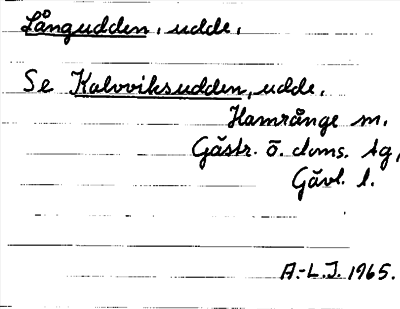 Långudden, udde.
Se Kalvviksudden, udde.
Hamrånge sn.
Gästr. ö. doms. tg,
Gävl. l.
A.-L.J. 1965.